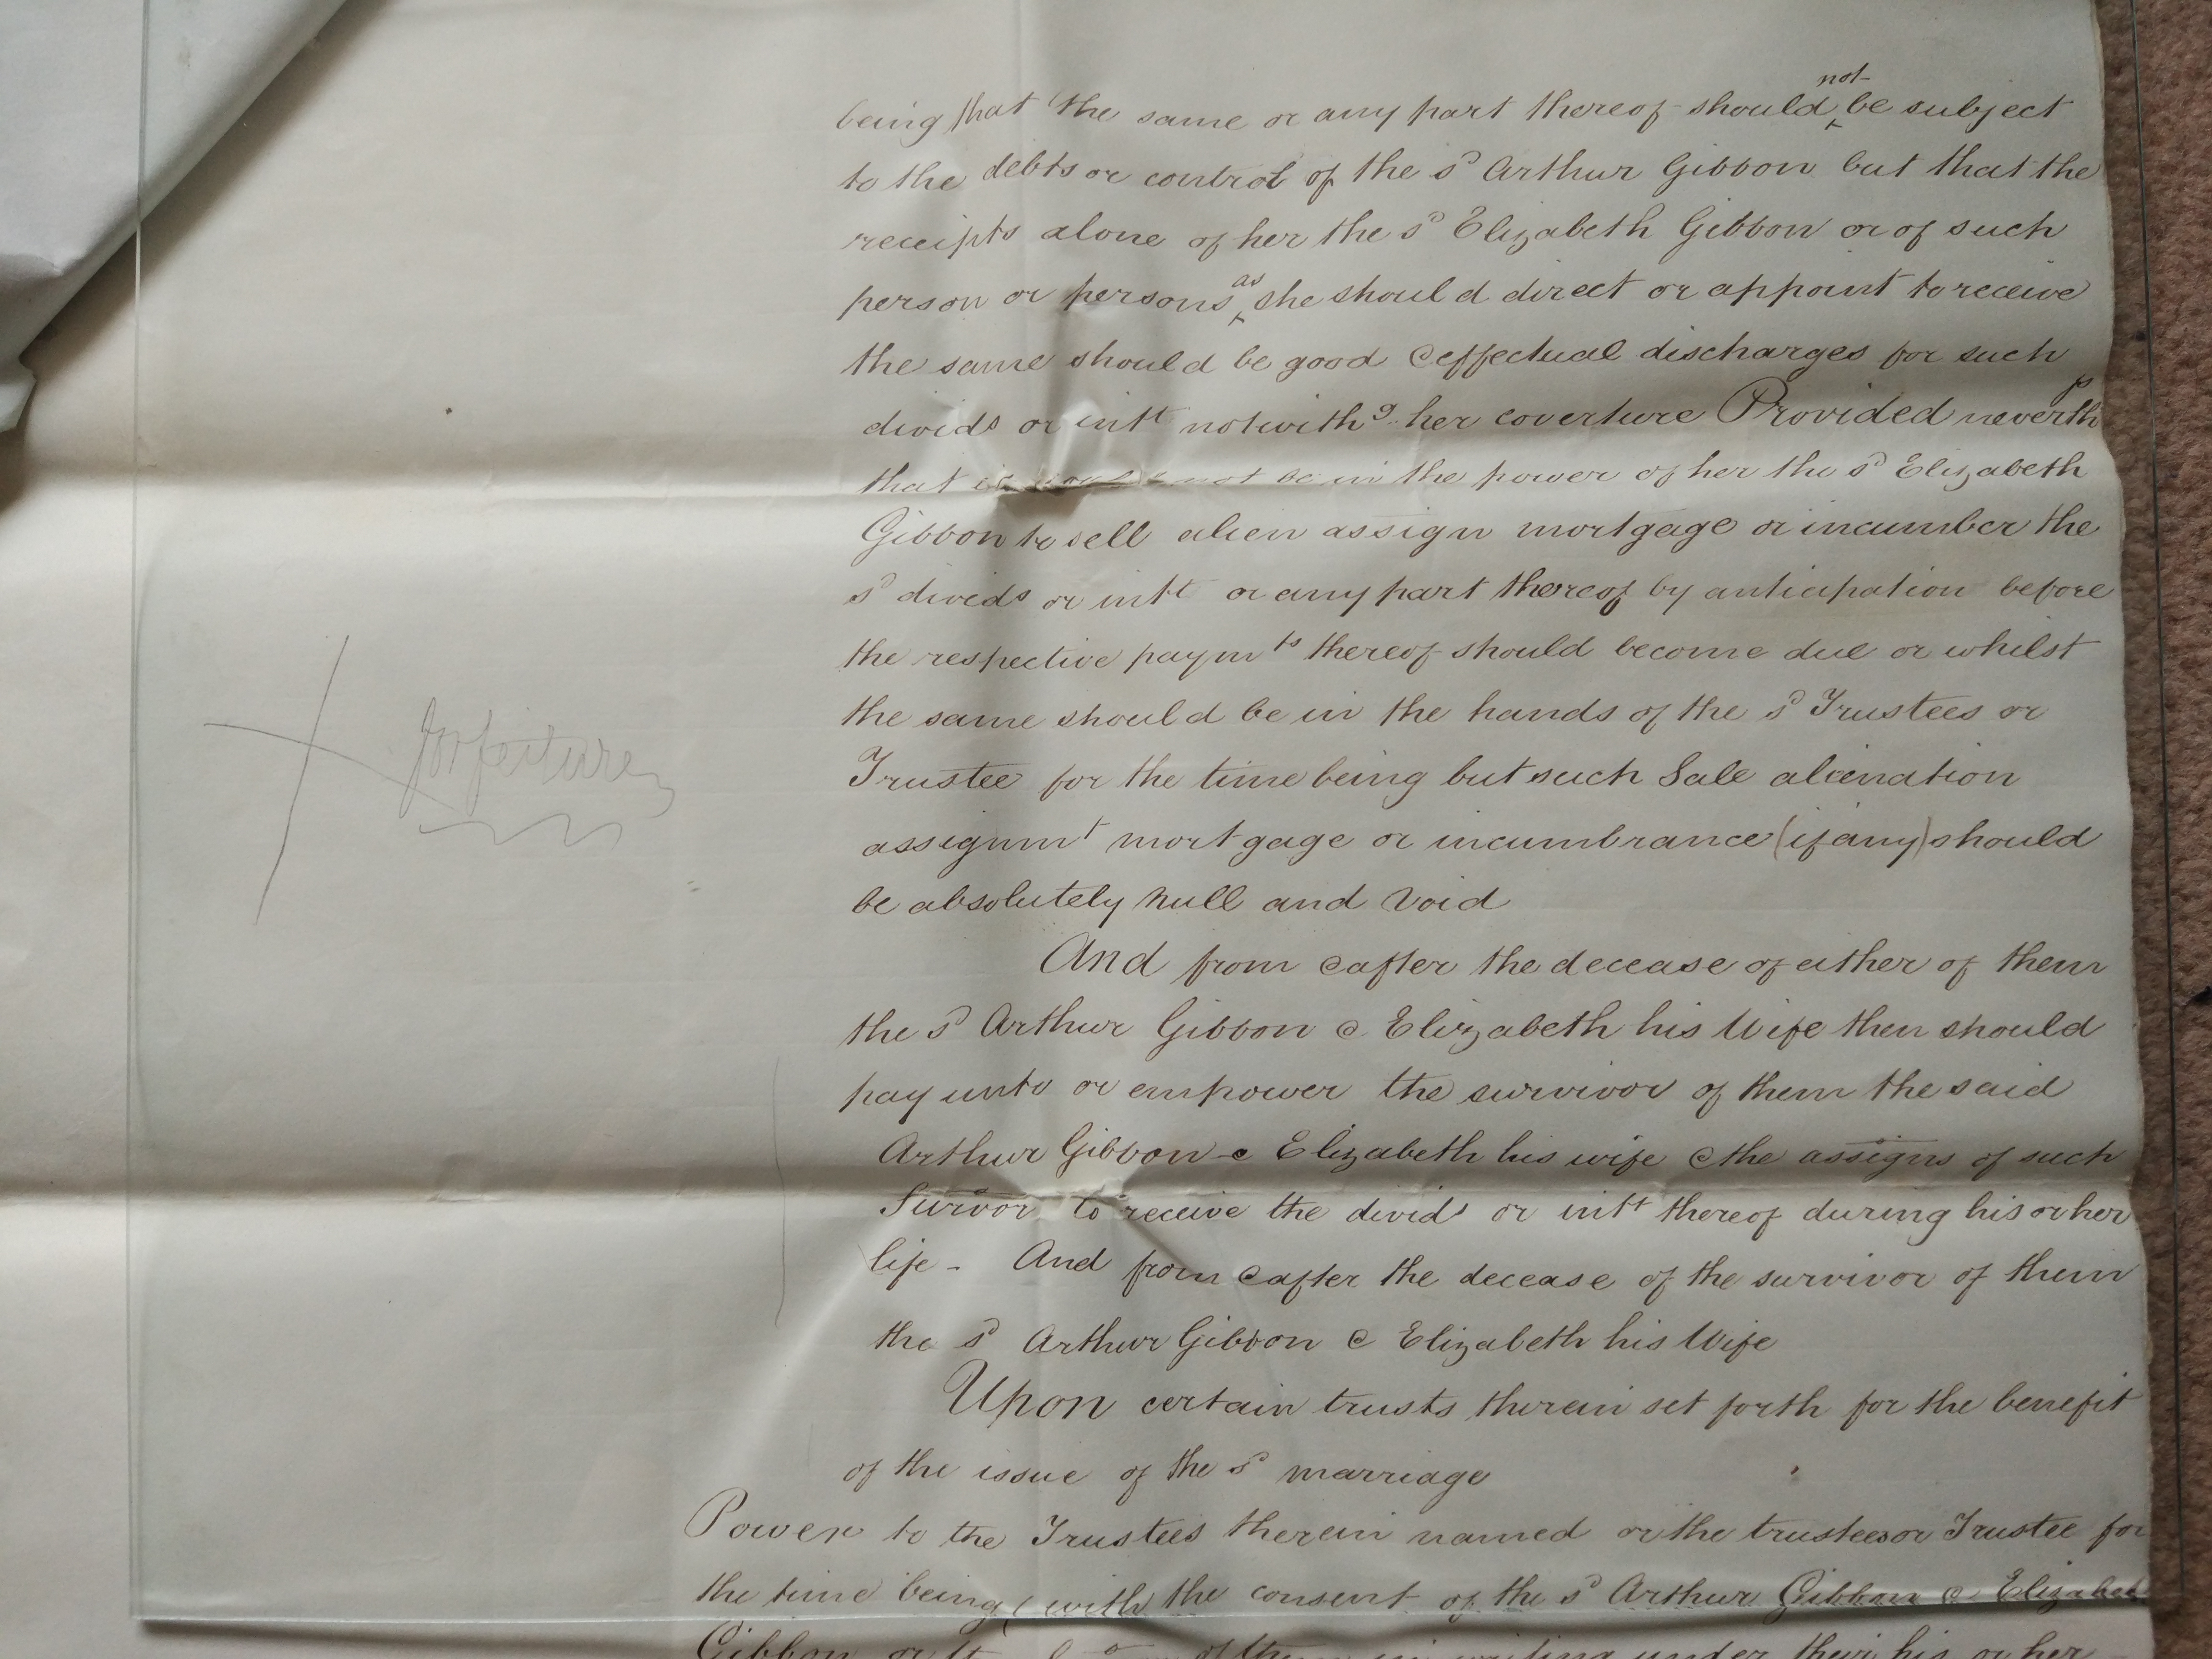 being that the same or any part thereof should not be subject
to the debts or control of the sd Arthur Gibbon but that the
receipts alone of her the sd Elizabeth Gibbon or of such
person or persons as she should direct or appoint to receive
the same should be good & effectual discharges for such
divids or intt notwithg her coverture Provided neverths
that it should not be in the power of her the sd Elizabeth
Gibbon to sell alien assign mortgage or incumber the
sd divids or intt or any part thereof by anticipation before
the respective paymts thereof should become due or whilst
the same should be in the hands of the sd Trustees or
Trustee for the time being but such Sale alienation
assignmt mortgage or incumbrance (if any) should
be absolutely null and void
forfeiture
And from & after the decease of either of them
the sd Arthur Gibbon & Elizabeth his Wife then should
pay unto or empower the survivor of them the said
Arthur Gibbon & Elizabeth his wife & the assigns of such
Survor to receive the divids or intt thereof during his or her
life - And from & after the decease of the survivor of them
the sd Arthur Gibbon & Elizabeth his Wife
Upon certain trusts therein set forth for the benefit
of the issue of the sd marriage
Power to the Trustees therein named or the trustees or Trustee for
the time being (with the consent of the sd Arthur Gibbon & Elizabeth
Gibbon or of them in writing under their his or her